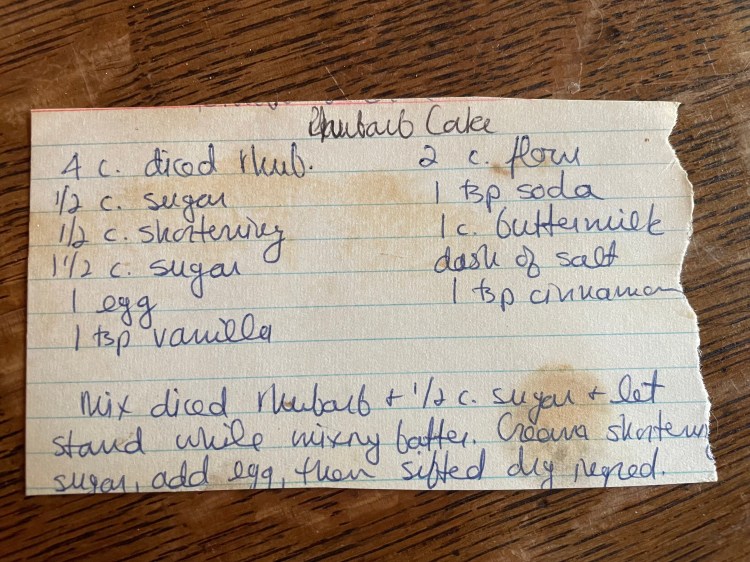 Rhubarb Cake
4 c. diced rhub.
1/2 c. sugar
1/2 c. shortening
1 1/2 c. sugar
1 egg
1 tsp vanilla
2 c. flour
1 tsp soda
1 c. buttermilk
dash of salt
1 tsp cinnamon
Mix diced rhubarb + 1/2 c. sugar + let
stand while mixing batter. Cream shortening
sugar, add egg, then sifted dry ingred.